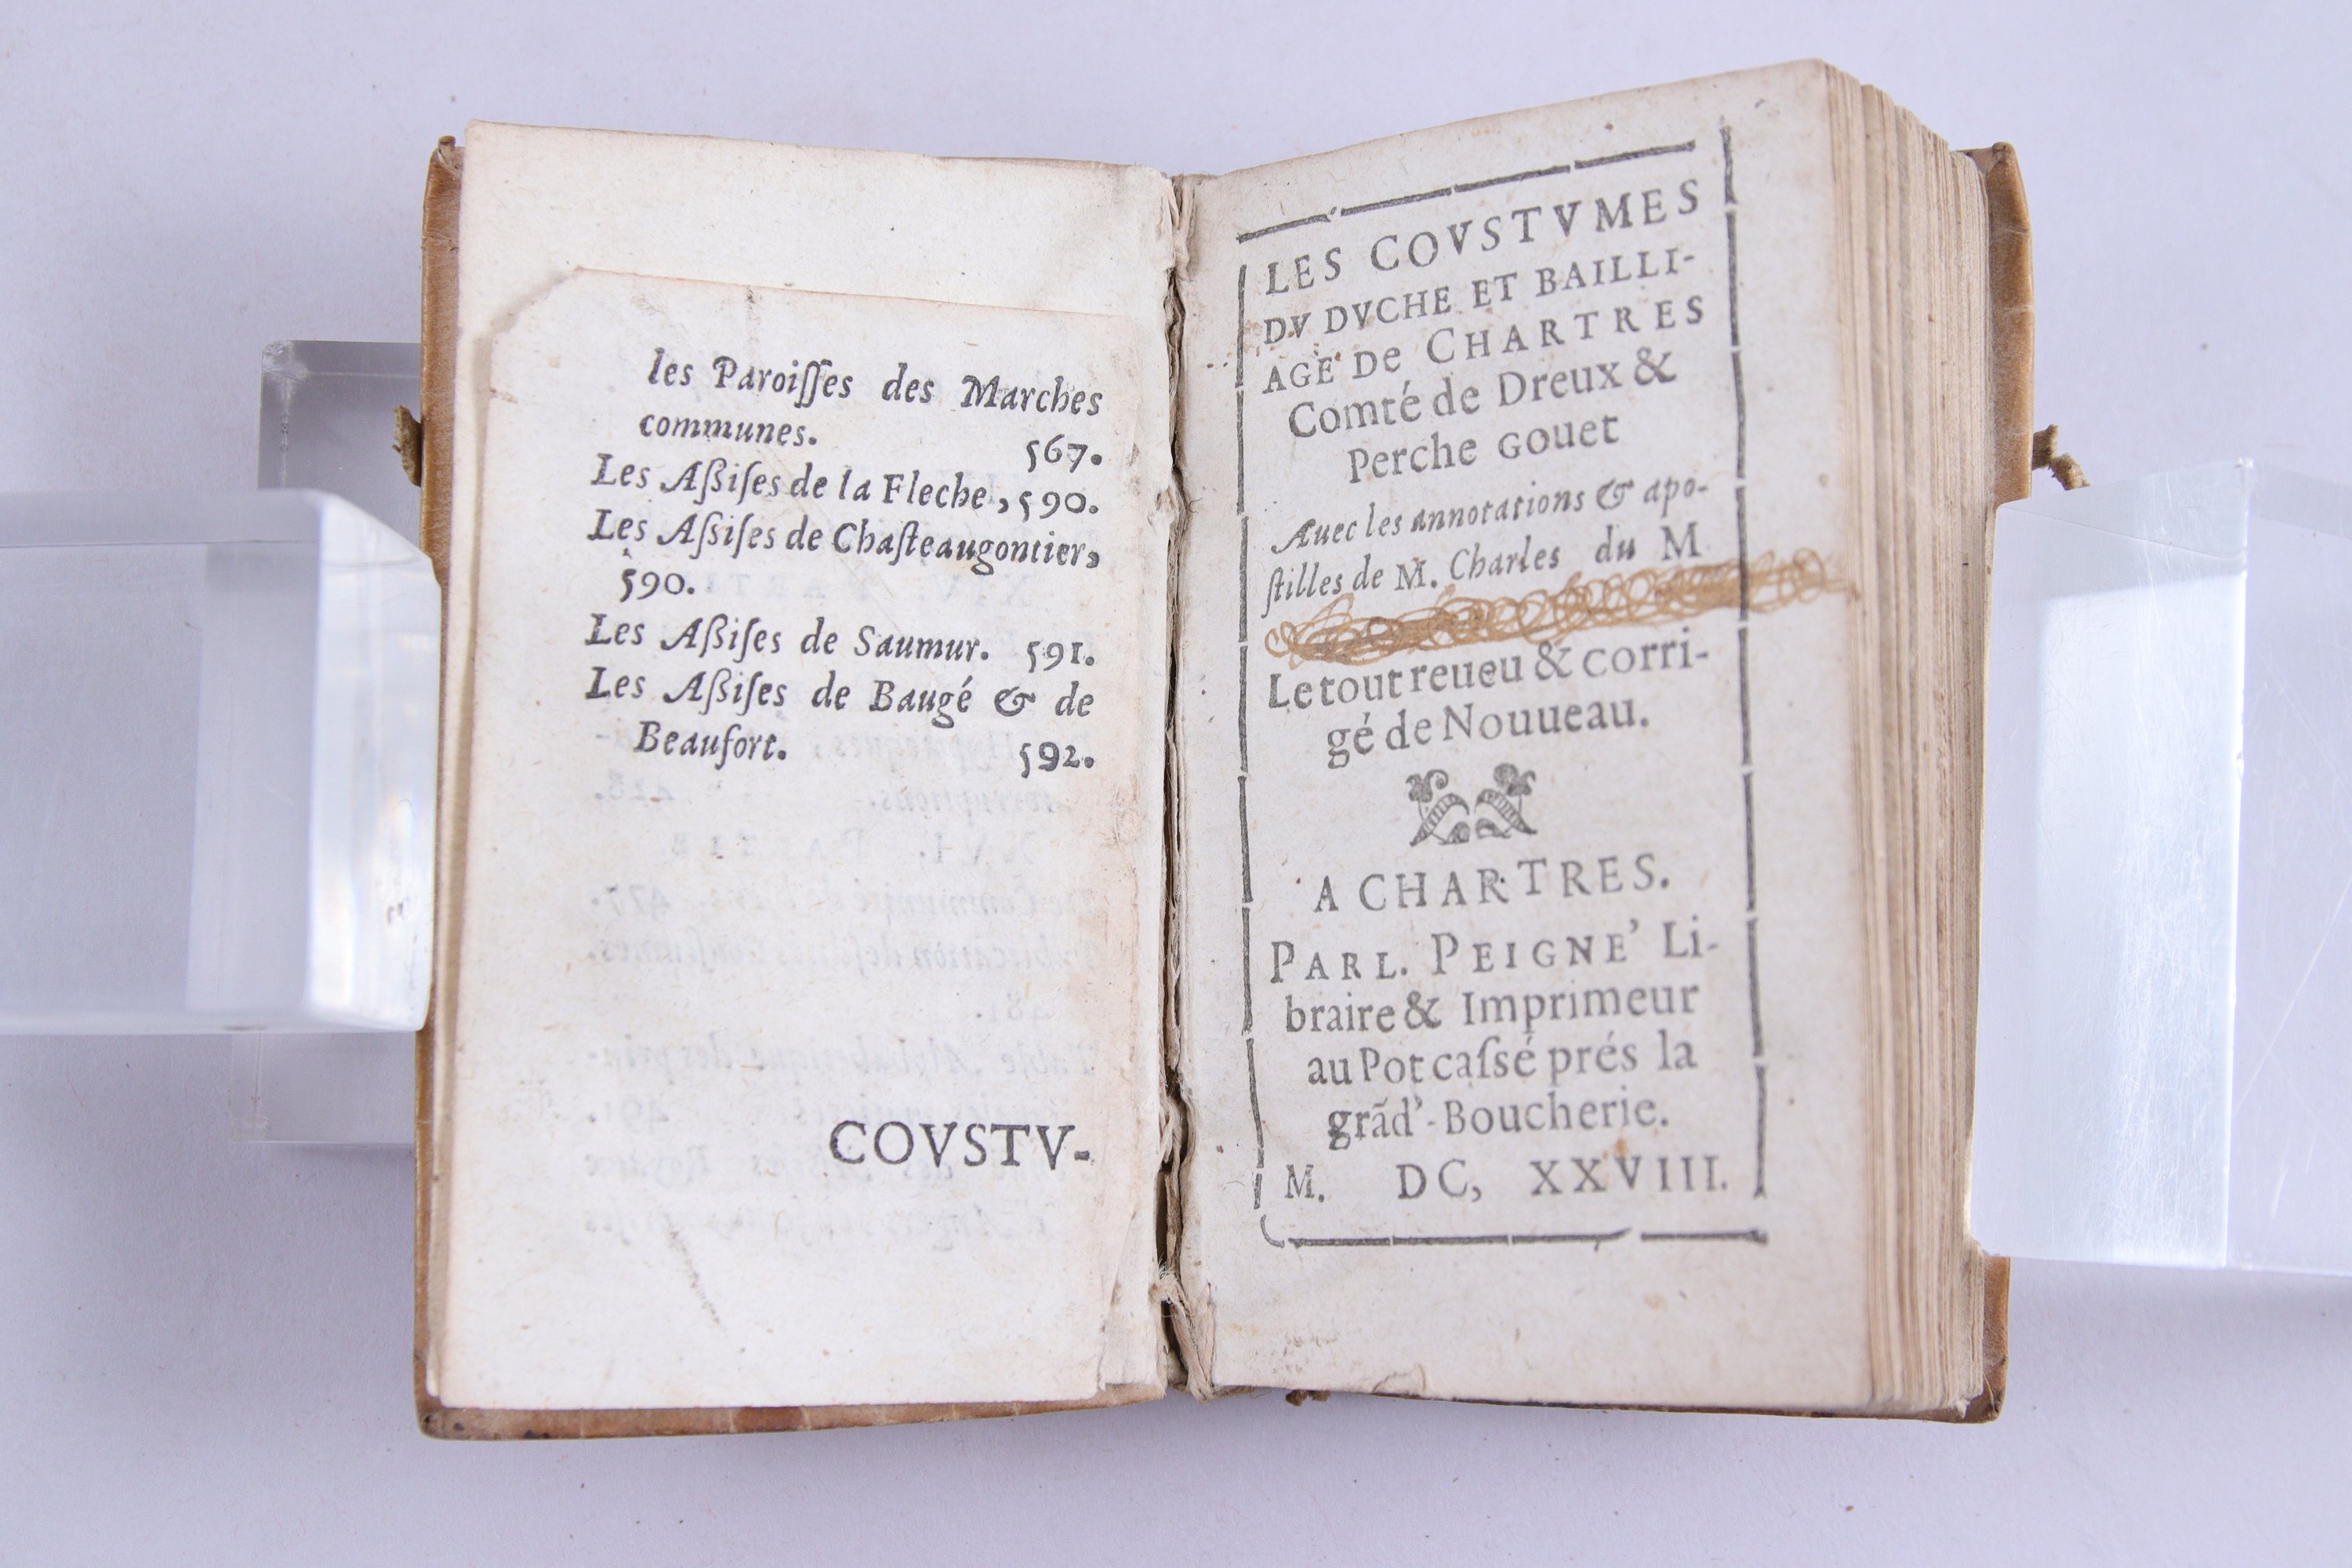 les Paroiſſes des Marches
communes. 567.
Les Aßiſes de la Fleche, 590.
Les Aſsiſes de Chaſteaugontier,
590.
Les Aßiſes de Saumur. 591.
Les Aßiſes de Baugé & de
Beaufort. 592.
COVSTV-
LES COVSTVMES
DV DVCHE ET BAILLI-
AGE De CHARTRES
Comté de Dreux &
Perche Gouet
Auec les annotations & apo-
ſtilles de M. Charles du M
Le tout reueu & corri-
gé de Nouueau.
A CHARTRES.
PAR L. PEIGNE' Li-
braire & Imprimeur
au Pot caſsé prés la
grãd'-Boucherie.
M. DC, XXVIII.